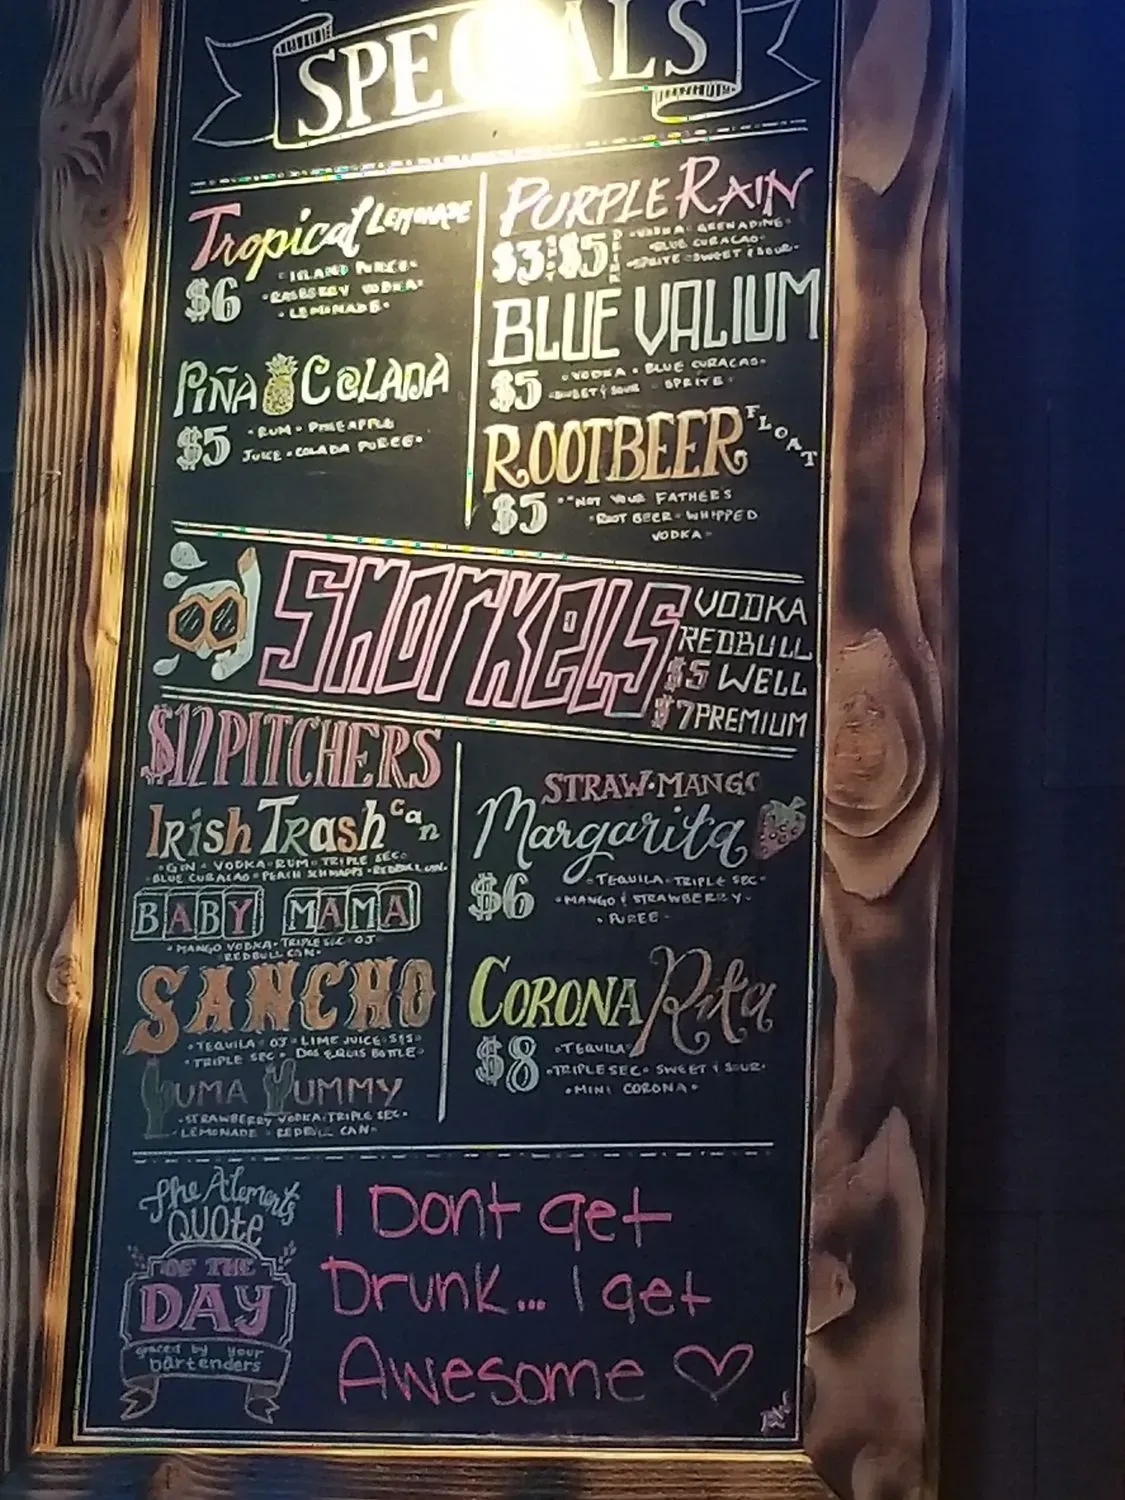 SPECIALS
Tropical LEMONADE
$6 ISLAND PUREE
RASBERRY VODKA
LEMONADE
PIÑA COLADA
$5 RUM PINEAPPLE
JUICE COLADA PUREE
PURPLE RAIN
$3 $5 VODKA GRENADINE
BLUE CURACAO
SPRITE SWEET & SOUR
BLUE VALIUM
$5 VODKA BLUE CURACAO
SWEET & SOUR SPRITE
ROOTBEER FLOAT
$5 "NOT YOUR FATHER'S
ROOT BEER WHIPPED
VODKA
SNORKELS
VODKA
REDBULL
$5 WELL
$7 PREMIUM
$12 PITCHERS
IRish TRash can
GIN VODKA RUM TRIPLE SEC
BLUE CURACAO PEACH SCHNAPPS REDBULL CAN
BABY MAMA
MANGO VODKA TRIPLE SEC OJ
REDBULL CAN
SANCHO
TEQUILA OJ LIME JUICE
TRIPLE SEC DOS EQUIS BOTTLE
YUMA YUMMY
STRAWBERRY VODKA TRIPLE SEC
LEMONADE REDBULL CAN
STRAW·MANGO
Margarita
$6 TEQUILA TRIPLE SEC
MANGO & STRAWBERRY
PUREE
CORONA Rita
$8 TEQUILA
TRIPLE SEC SWEET & SOUR
MINI CORONA
The Alement's
QUOTE
OF THE
DAY
graced by your
bartenders
I Dont get
Drunk... I get
Awesome ♡